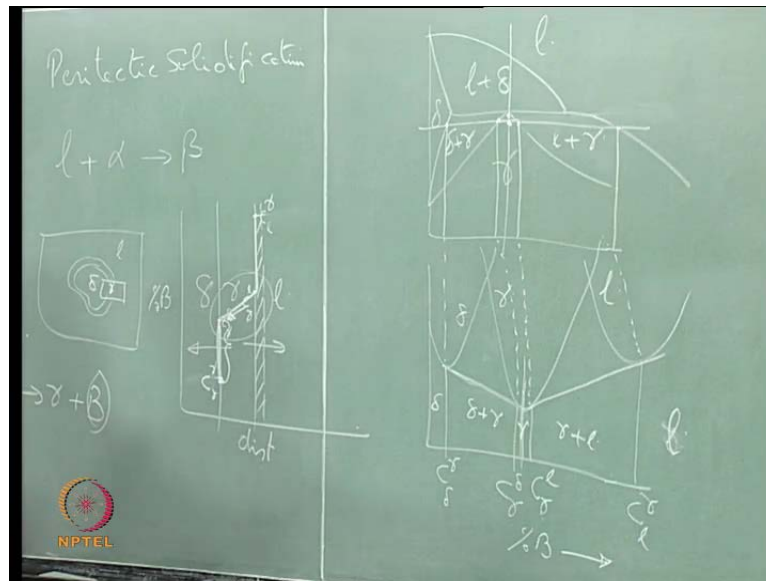 Peritectic Solidification
l + α → β
l
δ
γ
→ γ + β
%B
δ
γ
l
dist
l
l + δ
δ
δ+γ
γ
l + γ
δ
γ
l
δ
δ+γ
γ
γ+l
l
C δ γ
C γ δ
C γ l
C l γ
%B →
NPTEL